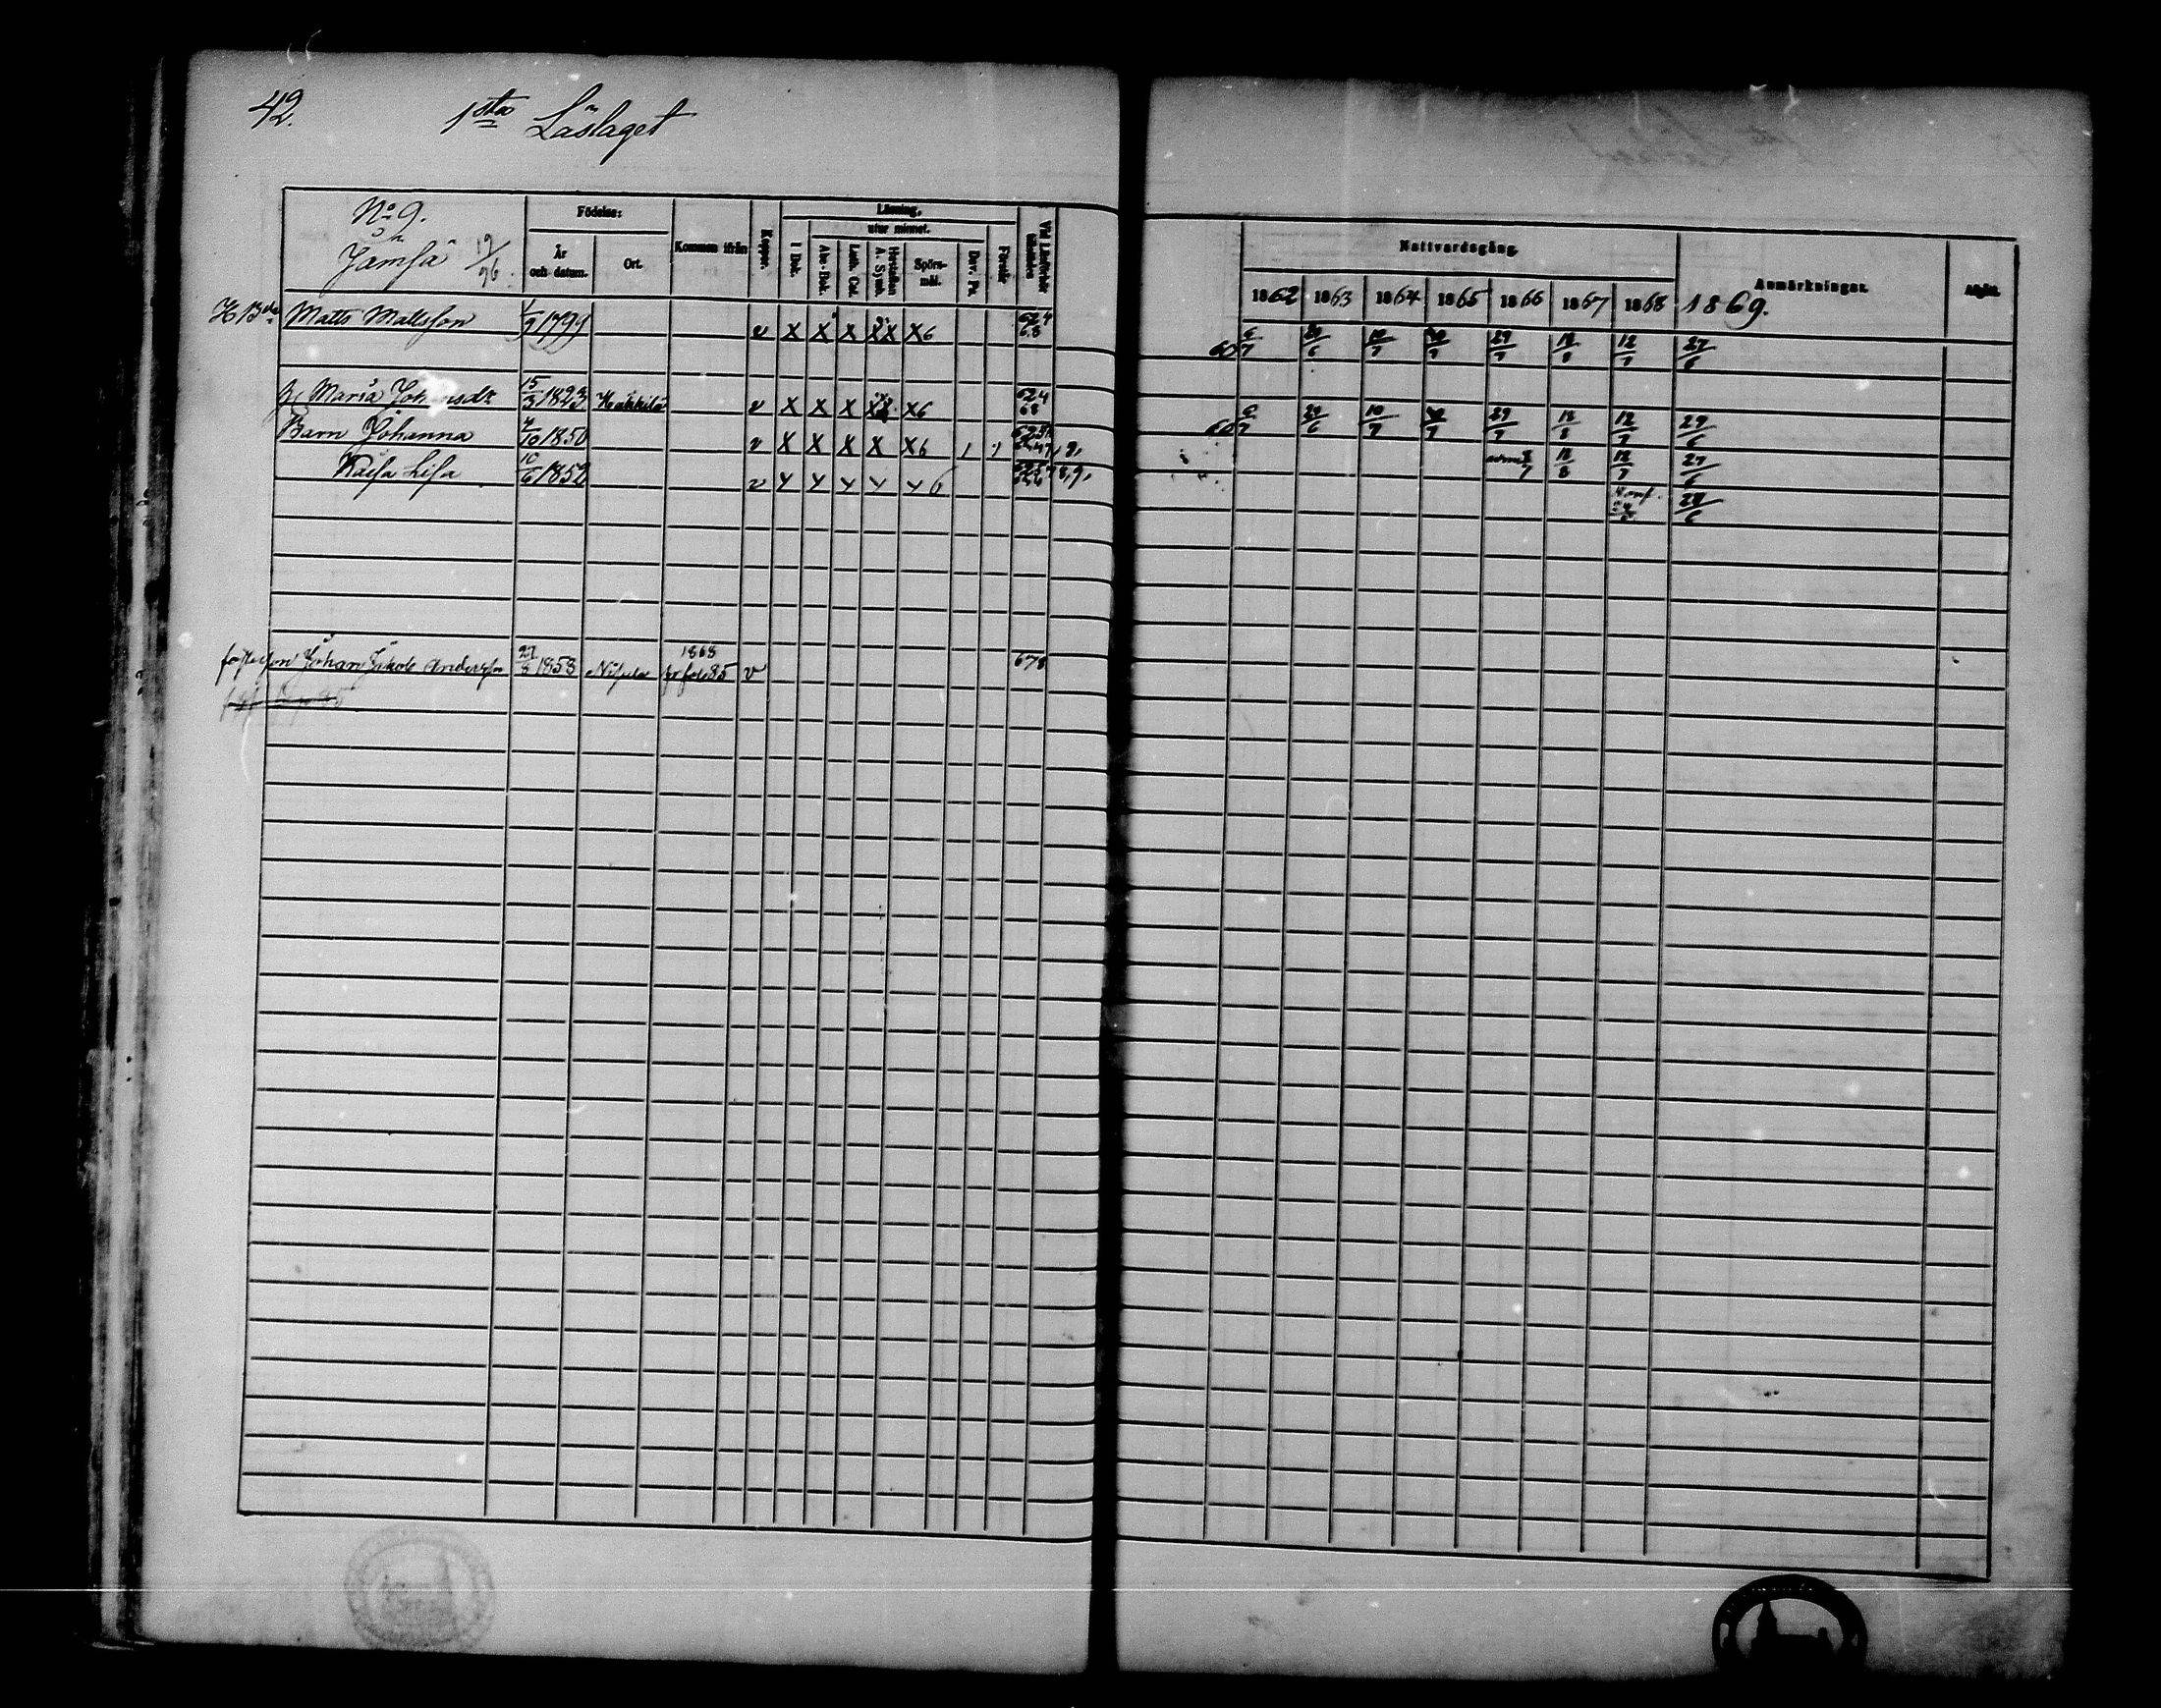 42.
1sta Läslaget
No 9.
Jämsä 19/96.
Födelse:
År och datum.
Ort.
Kommen ifrån
Koppor.
Läsning,
I Bok.
utur minnet.
Abc-Bok.
Luth. Cat.
Hustaflan A. Symb.
Spörsmål.
Dav. Ps.
Förstår
Vid Läsförhör tillstädes
Nattvardsgång.
1862 1863 1864 1865 1866 1867 1868 1869.
Anmärkningar.
Afgått.
Matts Mattsson 1799 v X X X X X X 6 62 4 68 60 6/7 29/6 10/7 29/7 12/8 12/7 27/6
H. Maria 15/3 1823 v X X X X X 6 62 4 68 60 6/7 29/6 10/7 29/7 12/8 12/7 27/6
Barn Johanna 4/10 1850 v X X X X X 6 12/8 12/7 27/6
Kaisa Lisa 10/6 1852 v 6 8, 9, 27/6
1868
Johan Jakob Andersson 27/8 1858 fr fol 85 v 678